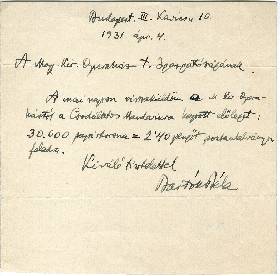 Budapest, III. Kavics u. 10.
1931. ápr. 4.
A Mag. Kir. Operaház T. Igazgatóságának.
A mai napon visszaküldöm a M. Kir. Opera-
háztól a Csodálatos Mandarinra kapott előleget:
30.000 papírkorona = 2.40 pengőt postautalványon
feladva.
Kiváló tisztelettel
Bartók Béla